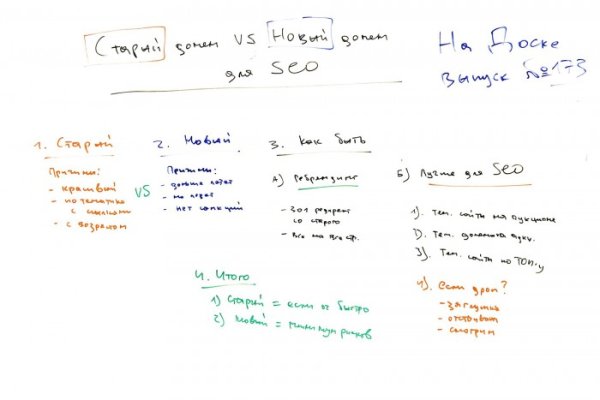 Старый домен VS Новый домен
для SEO
На Доске
выпуск №173
1. Старый
Причины:
- красивый
- по тематике
с ссылками
- с возрастом
VS
2. Новый
Причины:
- дольше
- нет санкций
3. Как быть
А) Ребрендинг
- 301 редирект
со старого
- Все на все стр.
Б) Лучше для SEO
1). Тем. сайты на аукционе
2). Тем. домена аукц.
3). Тем. сайты по ТОП-у
4). если дроп?
- заглушка
- отстаиваем
- смотрим
4. Итого
1) Старый = если оч быстро
2) Новый = минимум рисков